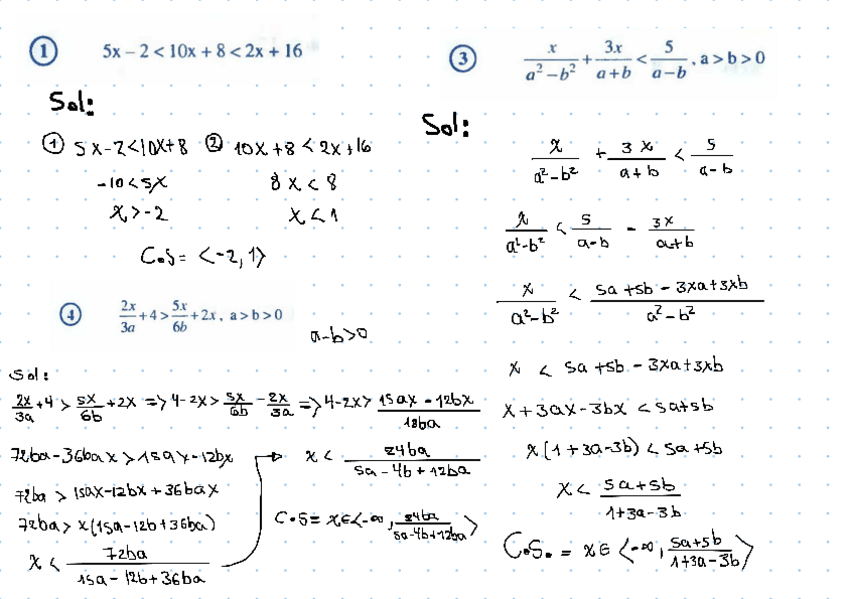 ① 5x – 2 < 10x + 8 < 2x + 16
Sol:
① 5x-2<10x+8 ② 10x+8<2x+16
-10<5x 8x<8
x>-2 x<1
C.S= <-2,1>
④ 2x/3a + 4 > 5x/6b + 2x, a > b > 0
a-b>0
Sol:
2x/3a + 4 > 5x/6b + 2x => 4-2x > 5x/6b - 2x/3a => 4-2x > 15ax - 12bx/18ba
72ba-36bax>15ax-12bx
72ba > 15ax-12bx+36bax
72ba > x(15a-12b+36ba)
x < 72ba/15a-12b+36ba
x < 24ba/5a-4b+12ba
C.S= x∈<-∞, 24ba/5a-4b+12ba>
③ x/a²–b² + 3x/a+b < 5/a–b, a > b > 0
Sol:
x/a²-b² + 3x/a+b < 5/a-b
x/a²-b² < 5/a-b - 3x/a+b
x/a²-b² < 5a+5b-3xa+3xb/a²-b²
x < 5a+5b-3xa+3xb
x+3ax-3bx <5a+5b
x(1+3a-3b) < 5a+5b
x < 5a+5b/1+3a-3b
C.S. = x∈ <-∞, 5a+5b/1+3a-3b>